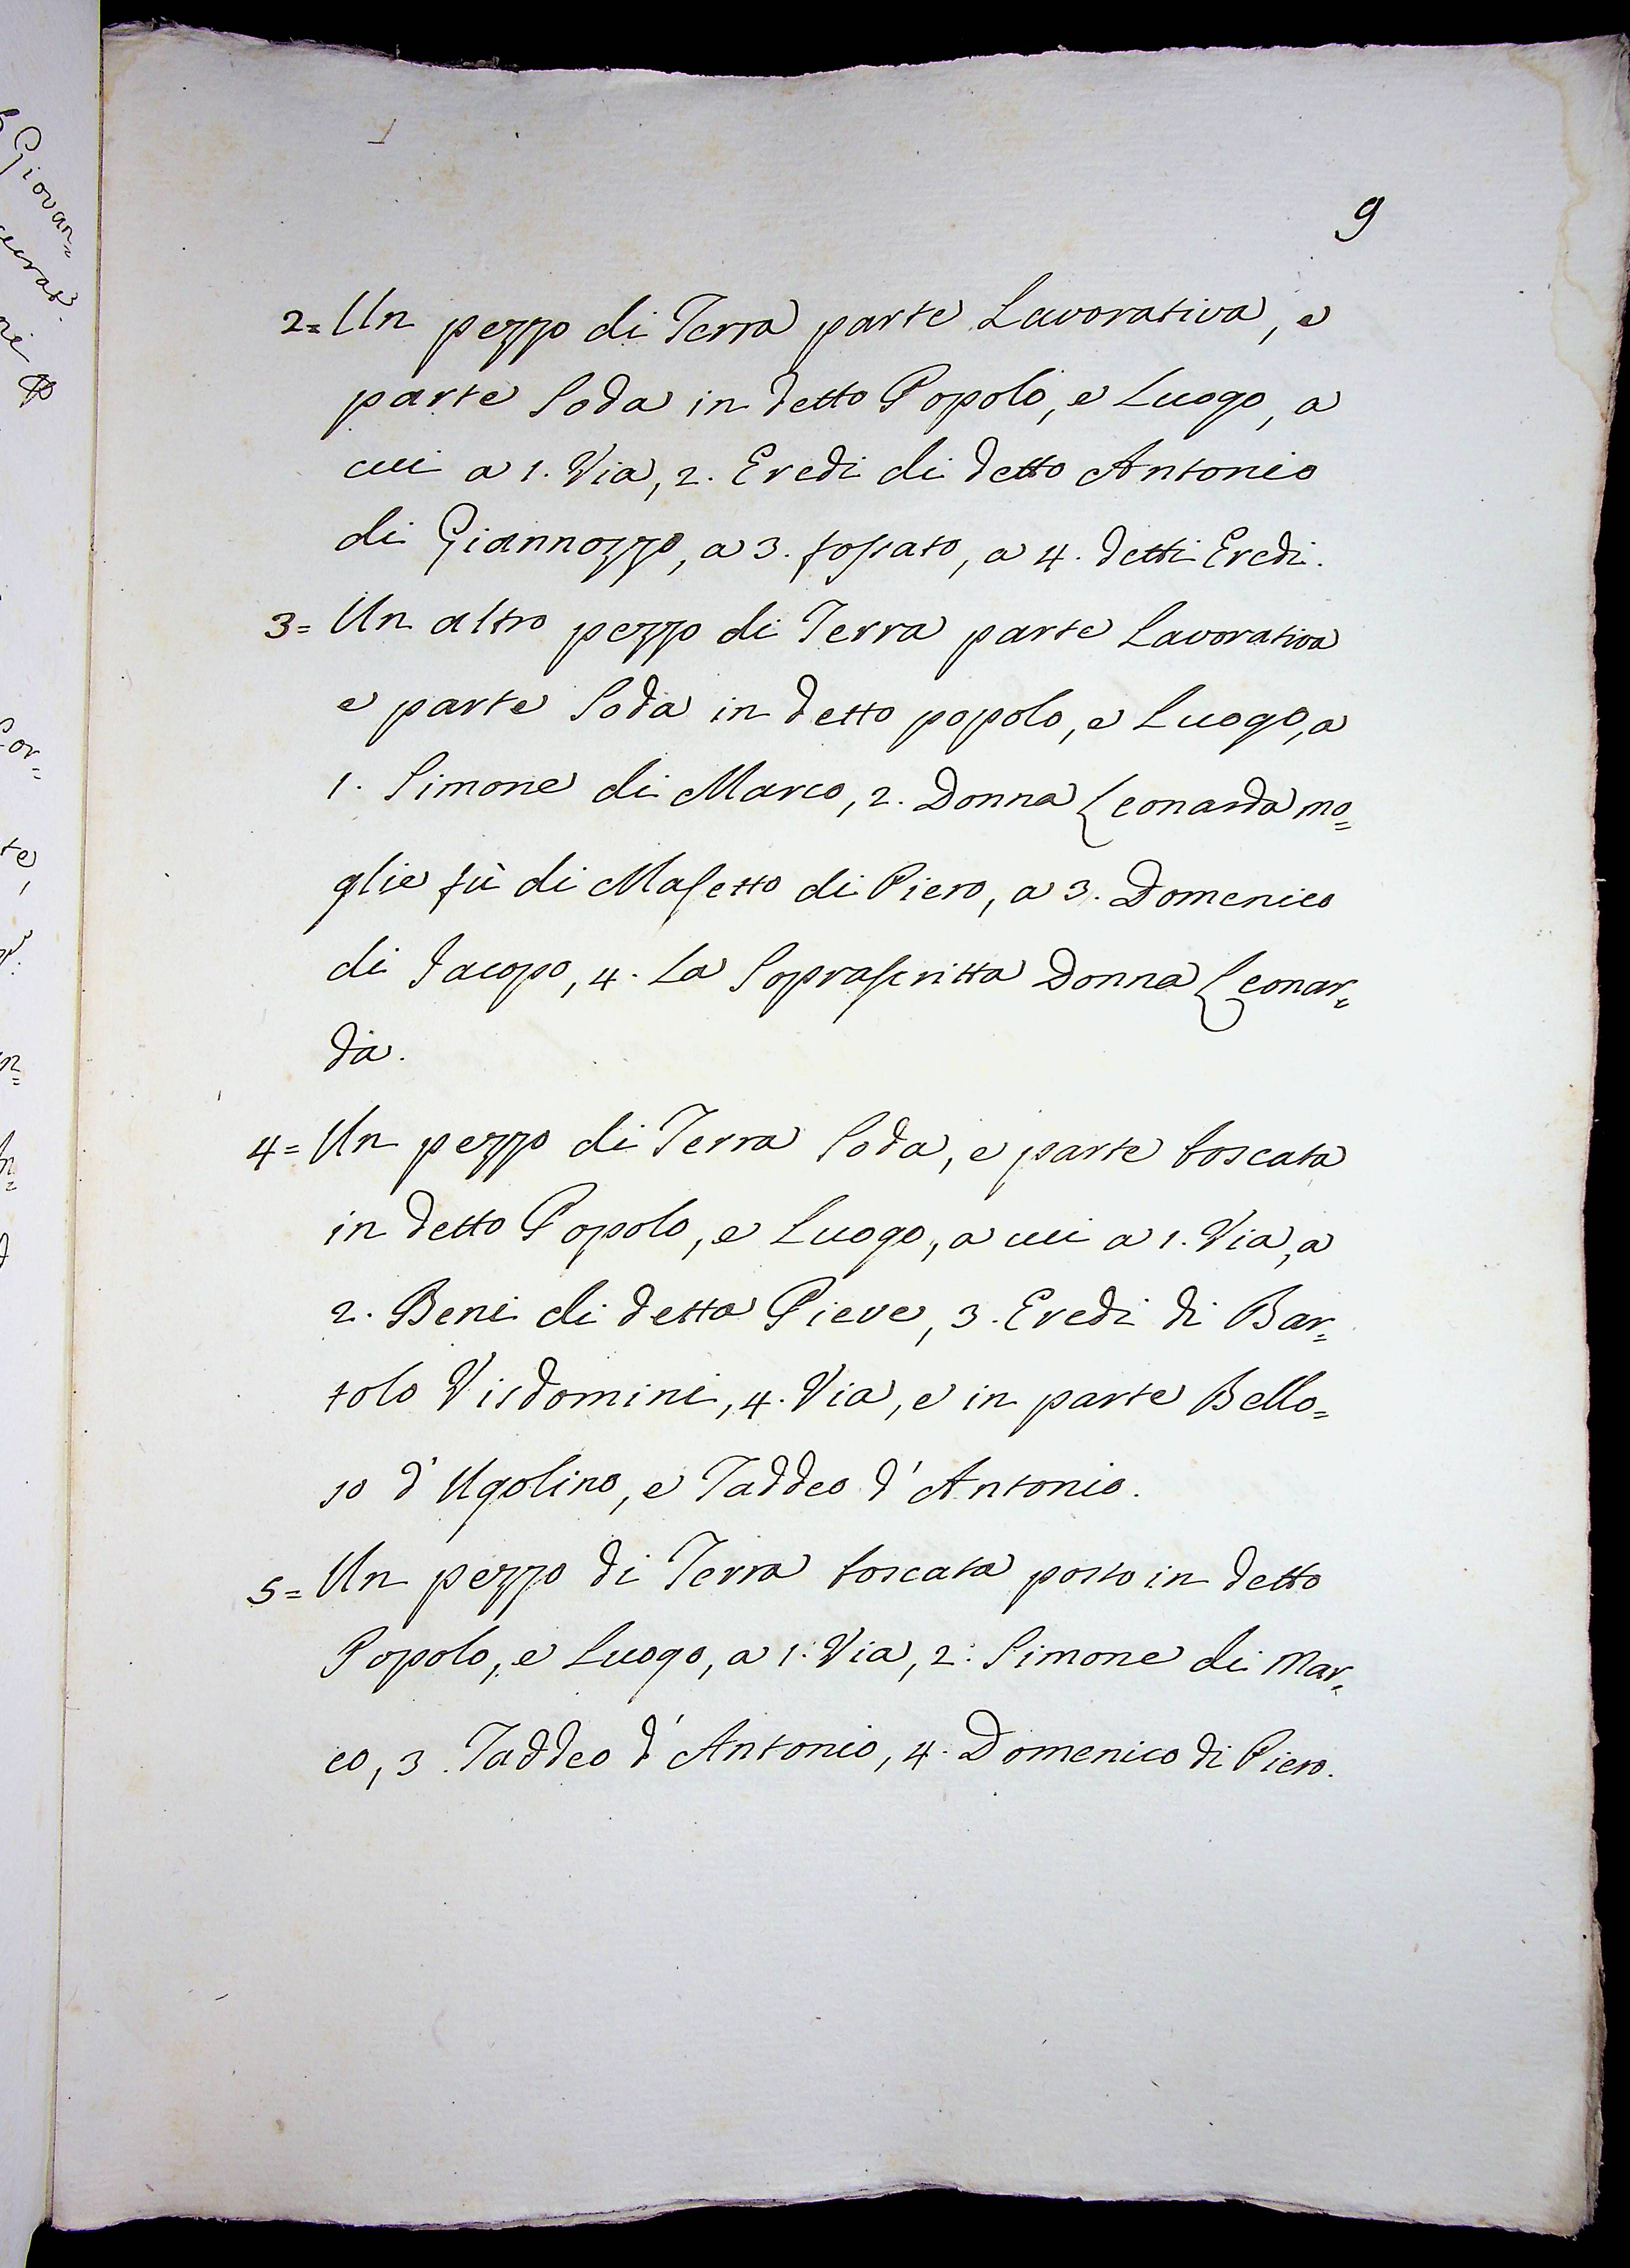 9
2= Un pezzo di Terra parte Lavorativa, e
parte Soda in detto Popolo, e Luogo, a
cui a 1. Via, 2. Eredi di detto Antonio
di Giannozzo, a 3. fossato, a 4. detti Eredi.
3= Un altro pezzo di Terra parte Lavorativa
e parte Soda in detto popolo, e Luogo, a
1. Simone di Marco, 2. Donna Leonarda mo=
glie fù di Masetto di Piero, a 3. Domenico
di Jacopo, 4. La Soprascritta Donna Leonar=
da.
4= Un pezzo di Terra Soda, e parte boscata
in detto Popolo, e Luogo, a cui a 1. Via, a
2. Beni di detta Pieve, 3. Eredi di Bar=
tolo Visdomini, 4. Via, e in parte Bello=
so d'Ugolino, e Taddeo d'Antonio.
5= Un pezzo di Terra boscata posto in detto
Popolo, e Luogo, a 1. Via, 2. Simone di Mar=
co, 3. Taddeo d'Antonio, 4. Domenico di Piero.